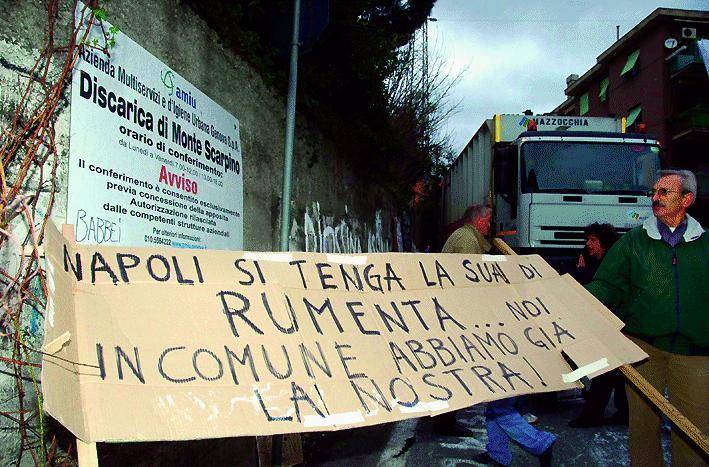 amiu
Azienda Multiservizi e d'Igiene Urbana Genova S.p.A.
Discarica di Monte Scarpino
orario di conferimento:
da Lunedì a Venerdì
Avviso
Il conferimento è consentito esclusivamente
previa concessione della apposita
Autorizzazione rilasciata
dalle competenti strutture aziendali
Per ulteriori informazioni:
BABBEI
MAZZOCCHIA
amiu
NAPOLI SI TENGA LA SUA DI
RUMENTA... NOI
IN COMUNE ABBIAMO GIÀ
LA NOSTRA!